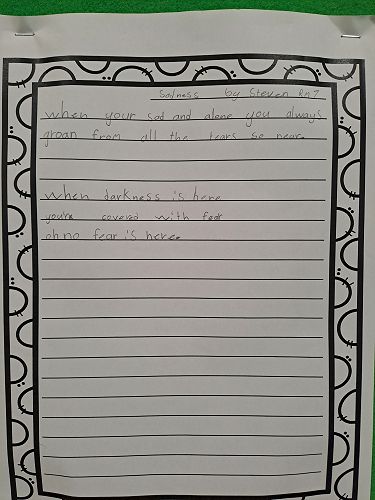 Sadness by Steven Rm7
when your sad and alone you always
groan from all the tears so near.
when darkness is here
youre covered with fear
oh no fear is here.